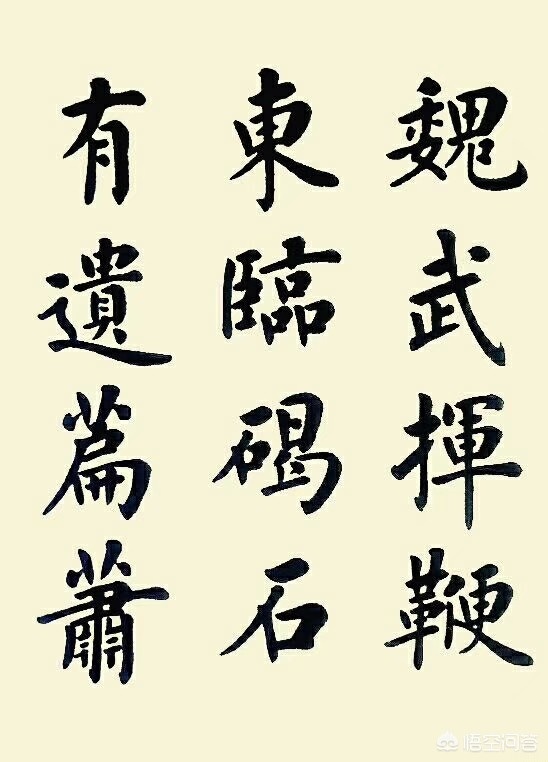 魏武揮鞭
東臨碣石
有遺篇蕭
悟空问答